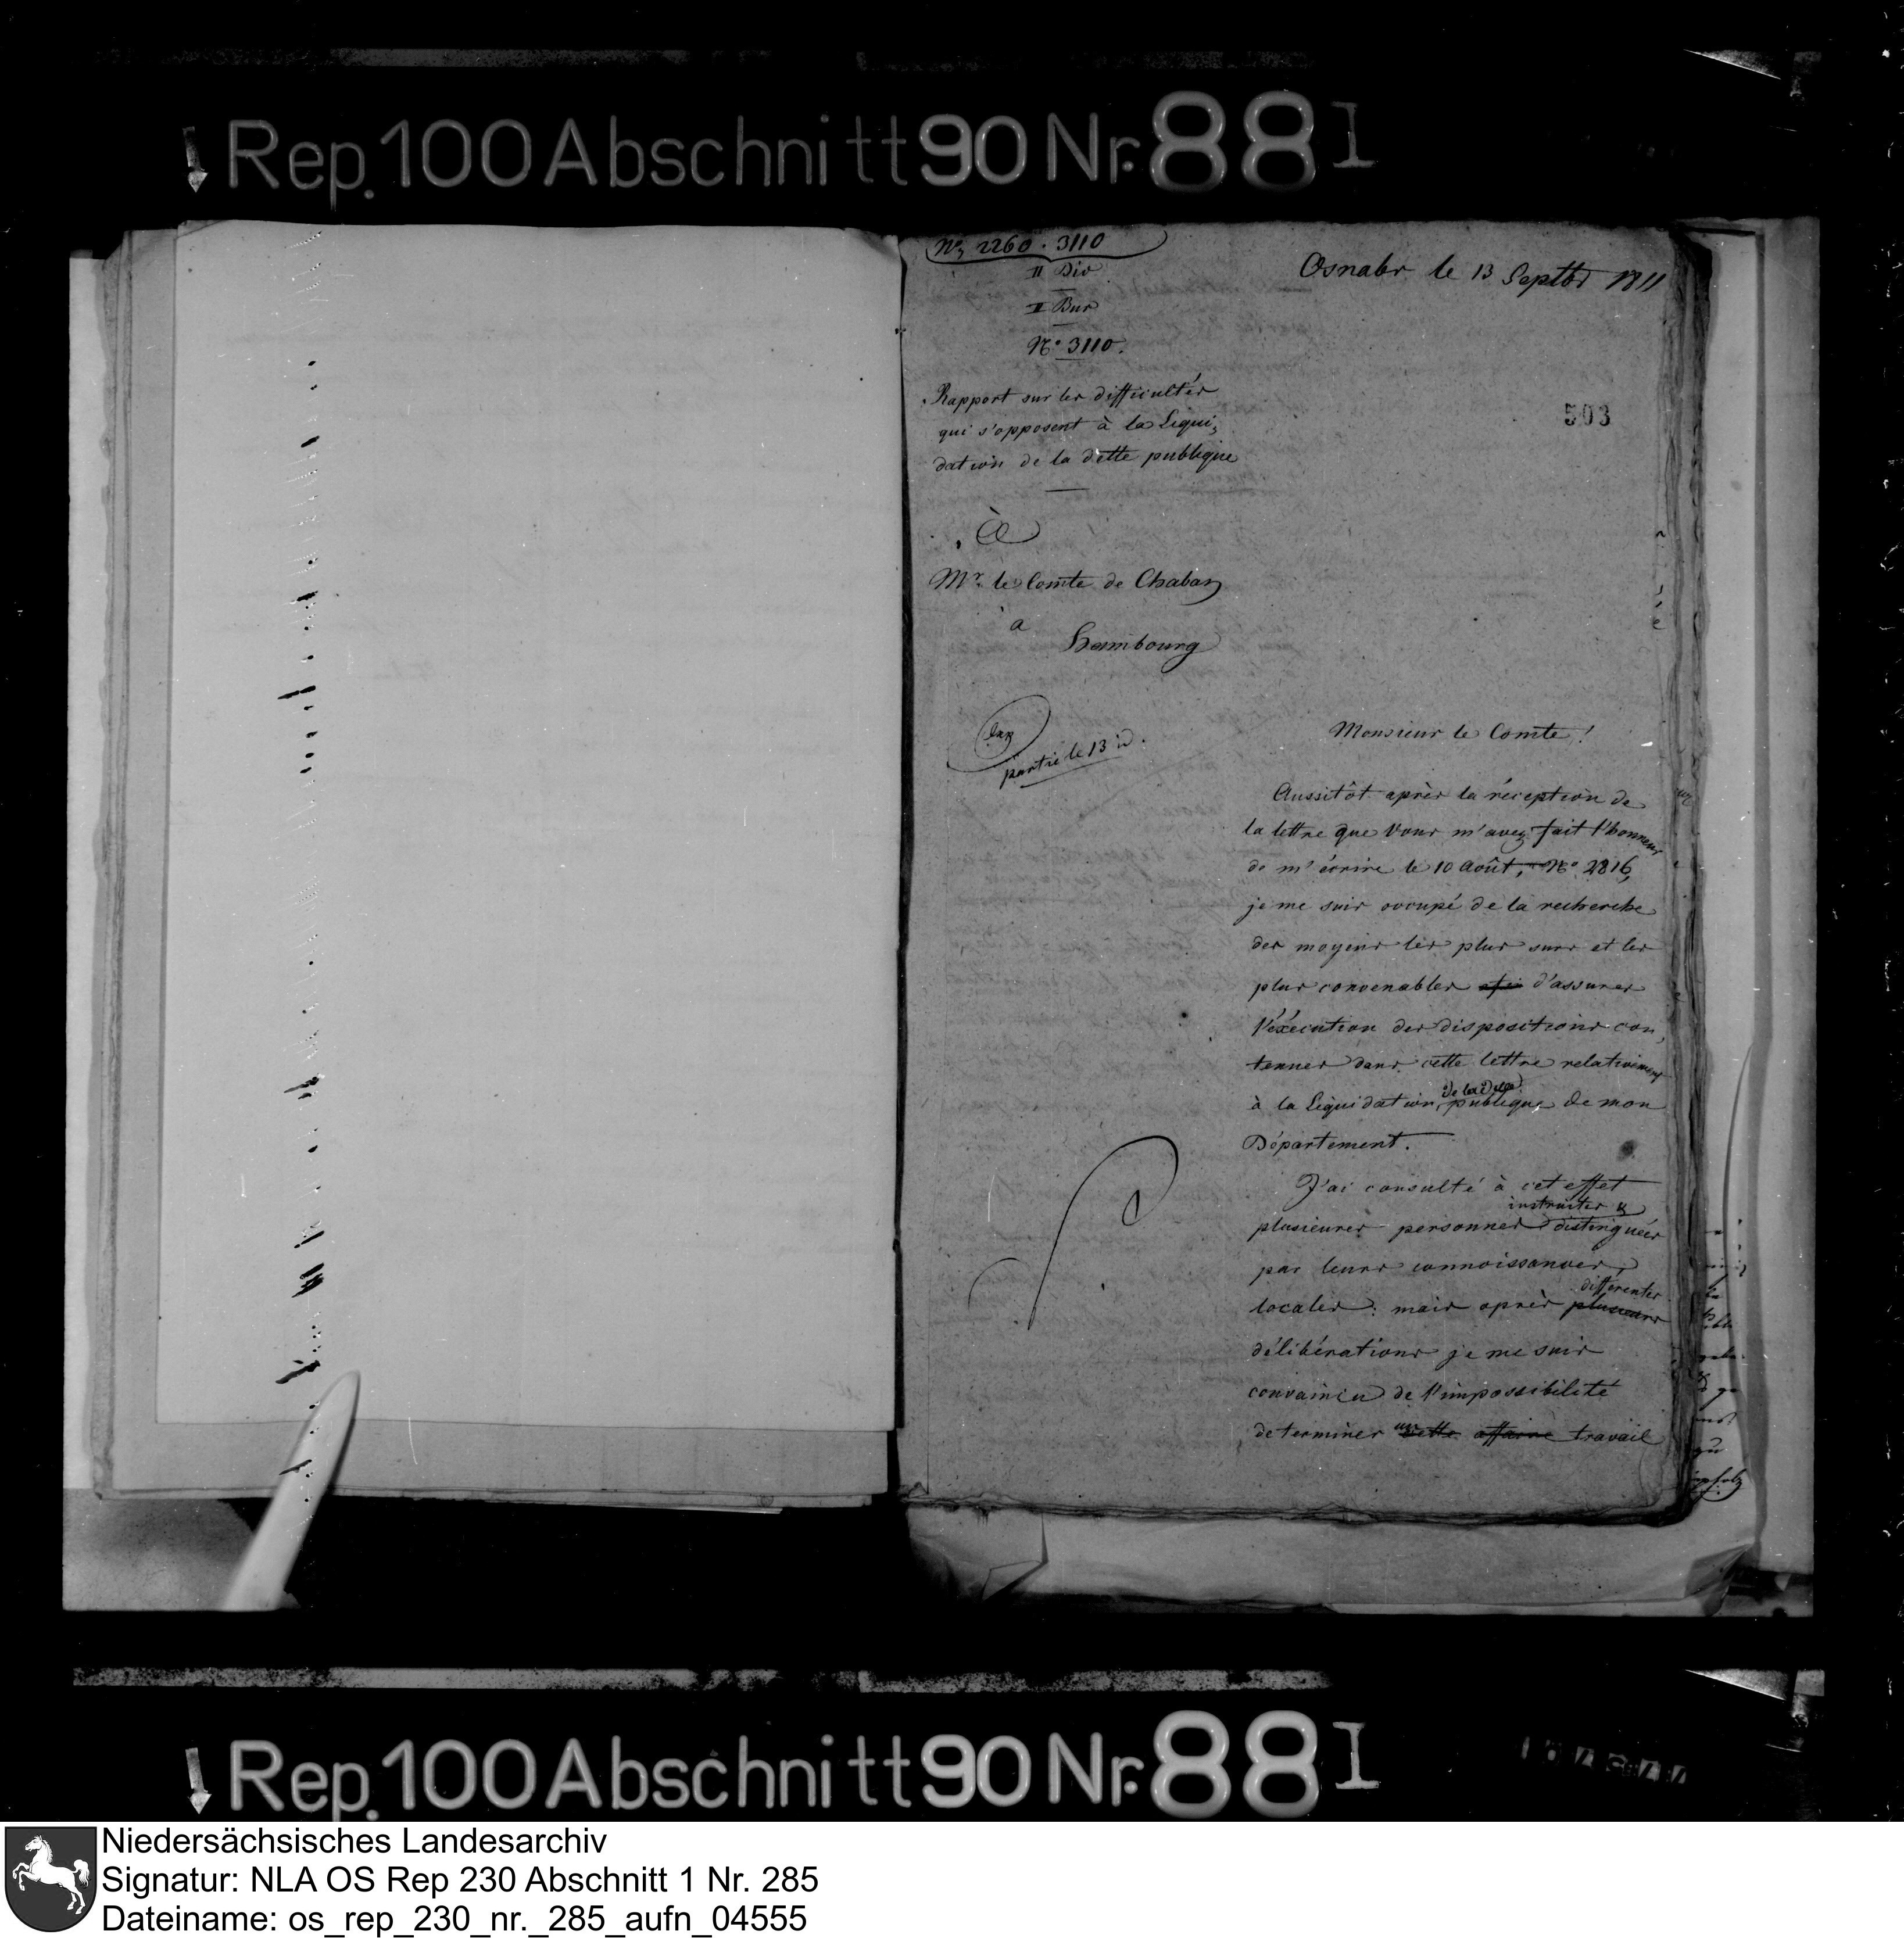 Rep. 100 Abschnitt 90 Nr. 88 I
Nº 2260. 3110
II Div
II Bur
Nº 3110.
Osnabr le 13 Septbr 1811
503
Rapport sur les difficultés
qui s'opposent à la Liqui-
dation de la dette publique
à
Mr. le Comte de Chaban
à
Hambourg
partie le 13 d.
Monsieur le Comte!
Aussitôt après la réception de
la lettre que Vous m'avez fait l'honneur
de m'écrire le 10 Août, Nº 2816,
je me suis occupé de la recherche
des moyens les plus surs et les
plus convenables afin d'assurer
l'éxécution des dispositions con-
tenues dans cette lettre relativement
de la dette
à la Liquidation publique de mon
Département.
J'ai consulté à cet effet
instruites &
plusieures personnes distinguées
par leurs connoissances
differentes
locales: mais après plusieurs
délibérations je me suis
convaincu de l'impossibilité
de terminer cette affaire travail
Rep. 100 Abschnitt 90 Nr. 88 I
Niedersächsisches Landesarchiv
Signatur: NLA OS Rep 230 Abschnitt 1 Nr. 285
Dateiname: os_rep_230_nr._285_aufn_04555